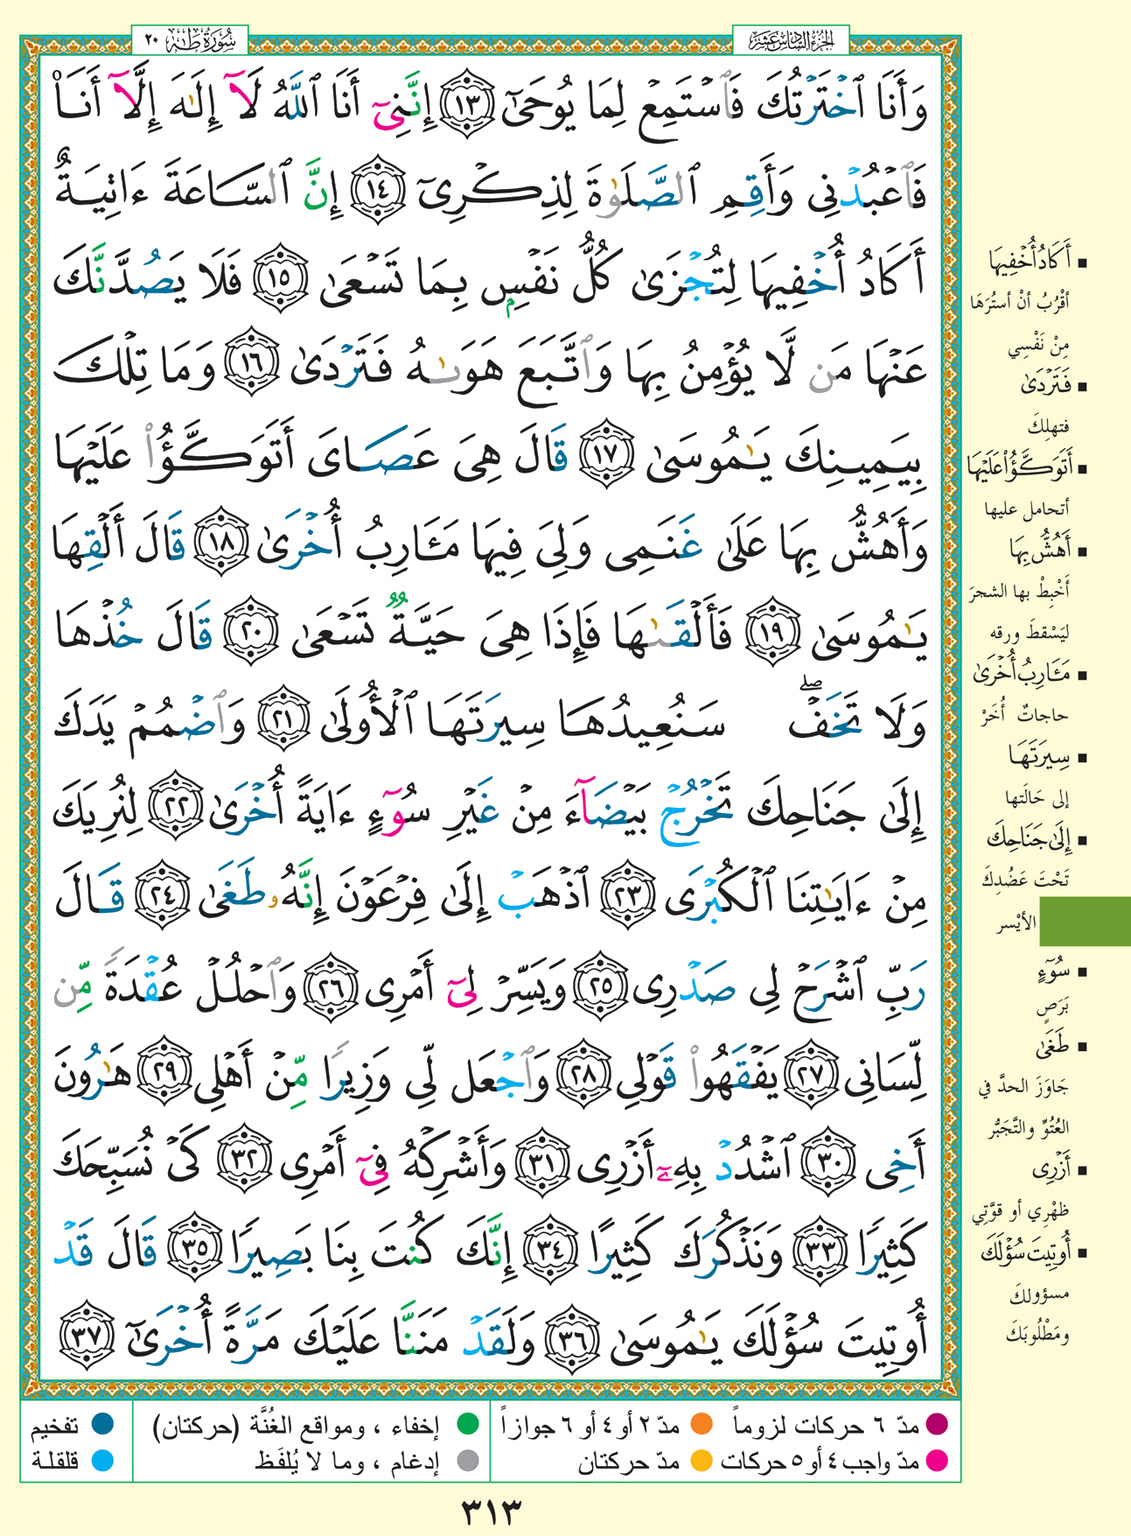 الجزء السادس عشر
سُورَةُ طه ٢٠
وَأَنَا ٱخْتَرْتُكَ فَٱسْتَمِعْ لِمَا يُوحَىٰٓ ١٣ إِنَّنِىٓ أَنَا ٱللَّهُ لَآ إِلَٰهَ إِلَّآ أَنَا۠
فَٱعْبُدْنِى وَأَقِمِ ٱلصَّلَوٰةَ لِذِكْرِىٓ ١٤ إِنَّ ٱلسَّاعَةَ ءَاتِيَةٌ
أَكَادُ أُخْفِيهَا لِتُجْزَىٰ كُلُّ نَفْسٍۭ بِمَا تَسْعَىٰ ١٥ فَلَا يَصُدَّنَّكَ
عَنْهَا مَن لَّا يُؤْمِنُ بِهَا وَٱتَّبَعَ هَوَىٰهُ فَتَرْدَىٰ ١٦ وَمَا تِلْكَ
بِيَمِينِكَ يَٰمُوسَىٰ ١٧ قَالَ هِىَ عَصَاىَ أَتَوَكَّؤُا۟ عَلَيْهَا
وَأَهُشُّ بِهَا عَلَىٰ غَنَمِى وَلِىَ فِيهَا مَـَٔارِبُ أُخْرَىٰ ١٨ قَالَ أَلْقِهَا
يَٰمُوسَىٰ ١٩ فَأَلْقَىٰهَا فَإِذَا هِىَ حَيَّةٌ تَسْعَىٰ ٢٠ قَالَ خُذْهَا
وَلَا تَخَفْ ۖ سَنُعِيدُهَا سِيرَتَهَا ٱلْأُولَىٰ ٢١ وَٱضْمُمْ يَدَكَ
إِلَىٰ جَنَاحِكَ تَخْرُجْ بَيْضَآءَ مِنْ غَيْرِ سُوٓءٍ ءَايَةً أُخْرَىٰ ٢٢ لِنُرِيَكَ
مِنْ ءَايَٰتِنَا ٱلْكُبْرَى ٢٣ ٱذْهَبْ إِلَىٰ فِرْعَوْنَ إِنَّهُۥ طَغَىٰ ٢٤ قَالَ
رَبِّ ٱشْرَحْ لِى صَدْرِى ٢٥ وَيَسِّرْ لِىٓ أَمْرِى ٢٦ وَٱحْلُلْ عُقْدَةً مِّن
لِّسَانِى ٢٧ يَفْقَهُوا۟ قَوْلِى ٢٨ وَٱجْعَل لِّى وَزِيرًا مِّنْ أَهْلِى ٢٩ هَٰرُونَ
أَخِى ٣٠ ٱشْدُدْ بِهِۦٓ أَزْرِى ٣١ وَأَشْرِكْهُ فِىٓ أَمْرِى ٣٢ كَىْ نُسَبِّحَكَ
كَثِيرًا ٣٣ وَنَذْكُرَكَ كَثِيرًا ٣٤ إِنَّكَ كُنتَ بِنَا بَصِيرًا ٣٥ قَالَ قَدْ
أُوتِيتَ سُؤْلَكَ يَٰمُوسَىٰ ٣٦ وَلَقَدْ مَنَنَّا عَلَيْكَ مَرَّةً أُخْرَىٰٓ ٣٧
أَكَادُ أُخْفِيهَا
أقْرُبُ أنْ أستُرَهَا
مِنْ نَفْسِي
فَتَرْدَىٰ
فتهلِكَ
أَتَوَكَّؤُا۟ عَلَيْهَا
أتحامل عليها
أَهُشُّ بِهَا
أَخْبِطُ بها الشجرَ
ليَسْقطَ ورقه
مَـَٔارِبُ أُخْرَىٰ
حاجاتٌ أُخَرْ
سِيرَتَهَا
إلى حَالَتها
إِلَىٰ جَنَاحِكَ
تَحْتَ عَضُدِكَ
الأيْسر
سُوٓءٍ
بَرَصٍ
طَغَىٰ
جَاوَزَ الحدَّ في
العُتُوِّ والتَّجَبُّرِ
أَزْرِى
ظهْرِي أو قوَّتِي
أُوتِيتَ سُؤْلَكَ
مسؤولكَ
ومَطْلُوبَكَ
مدّ ٦ حركات لزوماً
مدّ ٢ أو ٤ أو ٦ جوازاً
إخفاء ، ومواقع الغُنَّة (حركتان)
تفخيم
مدّ واجب ٤ أو ٥ حركات
مدّ حركتان
إدغام ، وما لا يُلفَظ
قلقلة
٣١٣